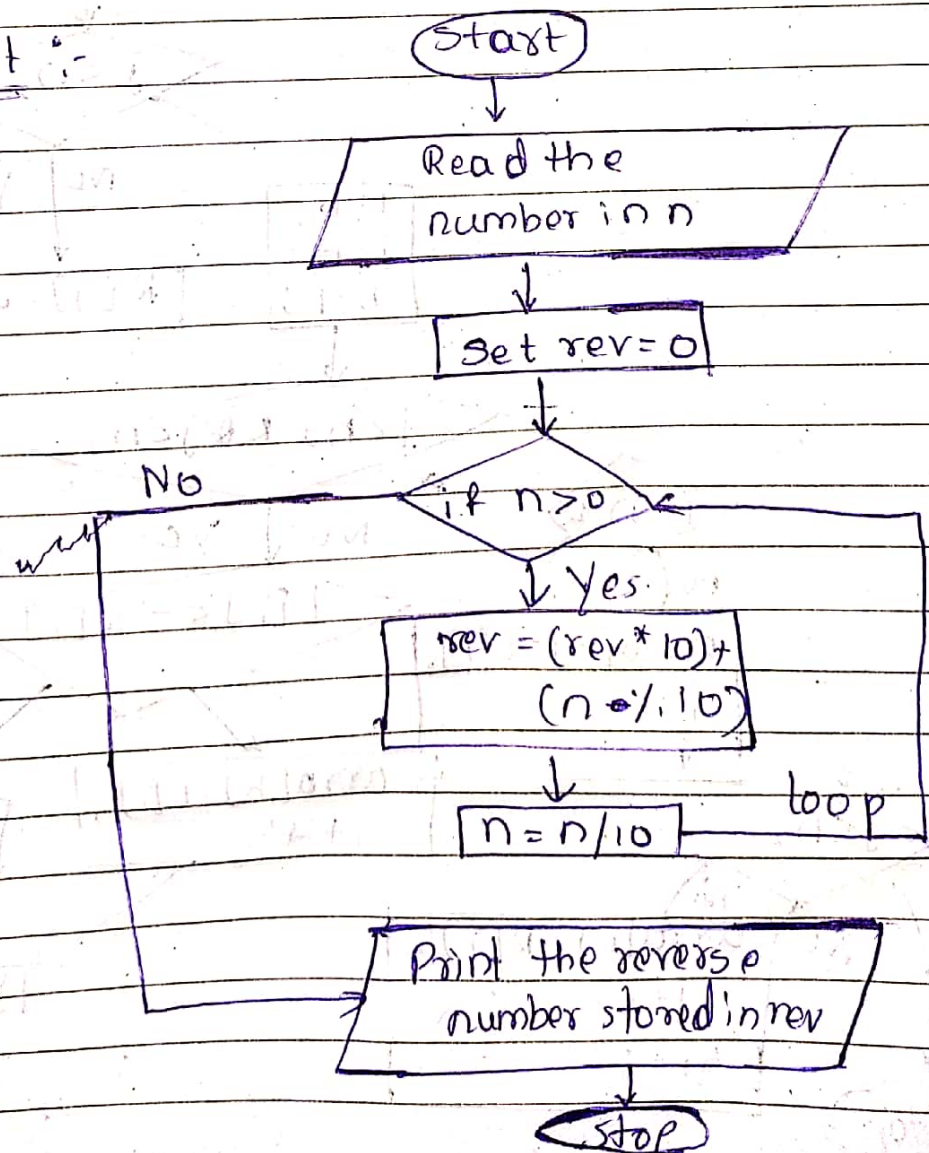 t :-
Start
Read the
number in n
Set rev = 0
if n > 0
No
Yes.
rev = (rev * 10) +
(n % 10)
n = n/10
loop
Print the reverse
number stored in rev
Stop